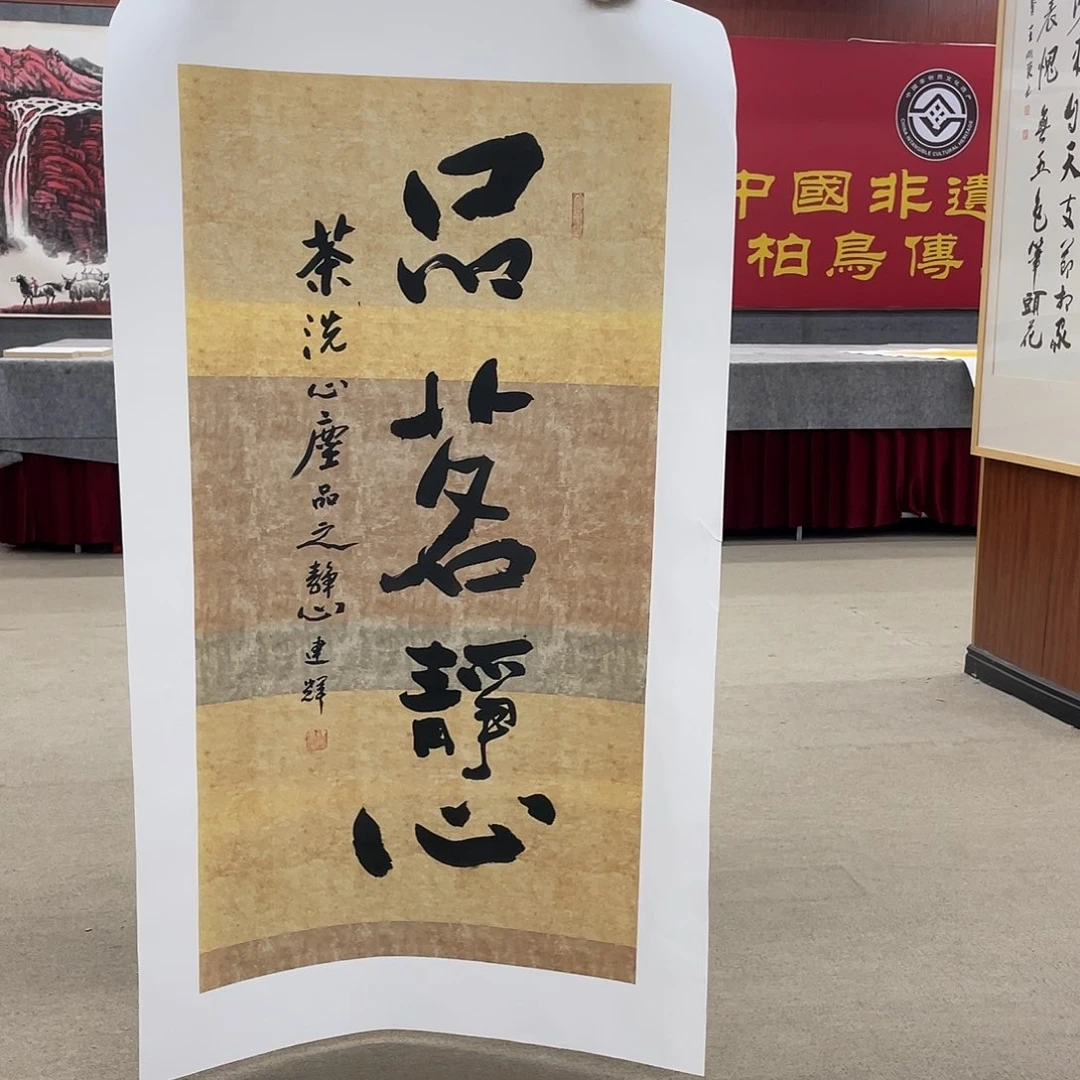 品茗靜心
茶洗心塵品之靜心建輝
CHINA INTANGIBLE CULTURAL HERITAGE
中國非遺
柏鳥傳
無五色筆頭花